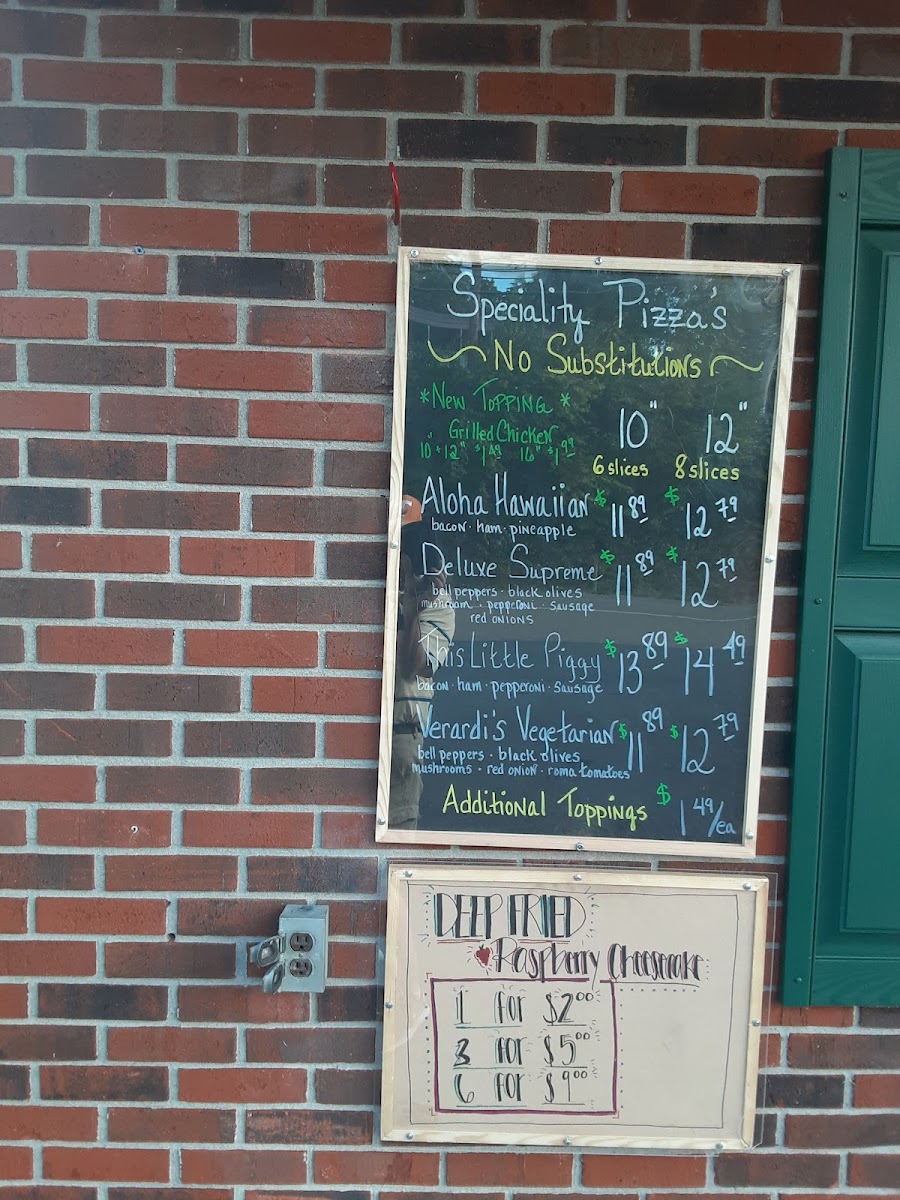 Speciality Pizza's
No Substitutions
*New Topping*
Grilled Chicken
10" + 12" $1.49 16" $1.99
10" 12"
6 slices 8 slices
Aloha Hawaiian $11.89 $12.79
bacon · ham · pineapple
Deluxe Supreme $11.89 $12.79
bell peppers · black olives
mushroom · pepperoni · sausage
red onions
This Little Piggy $13.89 $14.49
bacon · ham · pepperoni · sausage
Verardi's Vegetarian $11.89 $12.79
bell peppers · black olives
mushrooms · red onion · roma tomatoes
Additional Toppings $1.49/ea
DEEP FRIED
Raspberry Cheesecake
1 for $2.00
3 for $5.00
6 for $9.00